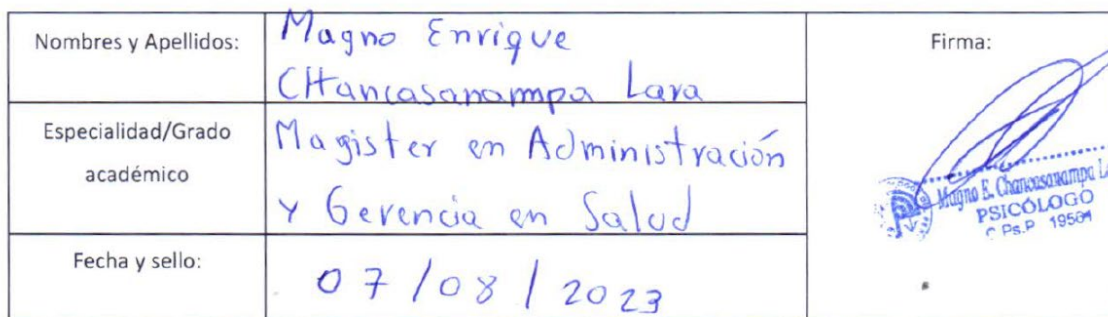 Nombres y Apellidos:
Magno Enrique
CHancasanampa Lara
Firma:
Especialidad/Grado
académico
Magister en Administración
y Gerencia en Salud
Magno E. Chancasanampa
PSICÓLOGO
C.Ps.P. 19501
Fecha y sello:
07/08/2023